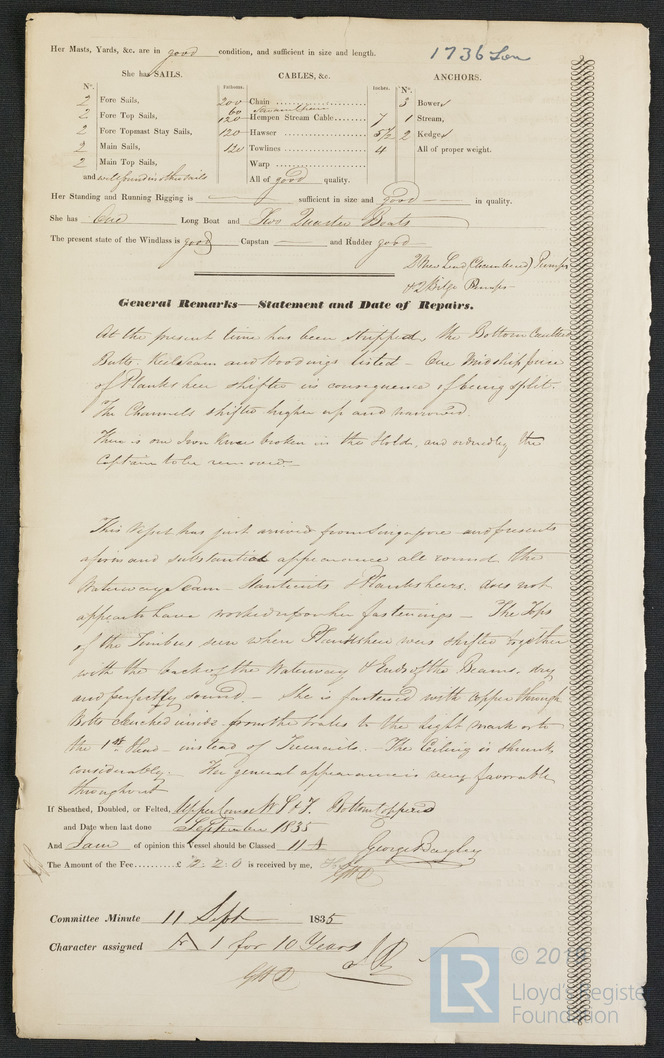 1736 Lon
Her Masts, Yards, &c. are in good condition, and sufficient in size and length.
She has SAILS. CABLES, &c. ANCHORS.
N°. Fathoms. Inches. N°.
2 Fore Sails, 200 Chain 3 Bower
2 Fore Top Sails, 60 120 Hempen Stream Cable 7 1 Stream,
2 Fore Topmast Stay Sails, 120 Hawser 5½ 2 Kedge
2 Main Sails, 120 Towlines 4 All of proper weight.
2 Main Top Sails, Warp
and well found in other sails All of good quality.
Her Standing and Running Rigging is sufficient in size and good in quality.
She has One Long Boat and Two Quarter Boats
The present state of the Windlass is good Capstan and Rudder good
2 New Lead Pumps
& 2 Bilge Pumps
General Remarks—Statement and Date of Repairs.
At the present time has been stripped, the Bottom Caulked
Butts Keel Seam and Hoodings listed – One Midship piece
of Planksheer shifted in consequence of being split.
The Channels shifted higher up and narrowed
There is one Iron Knee broken in the Hold, and ordered by the
Captain to be removed.
This Vessel has just arrived from Singapore and presents
a firm and substantial appearance all round the
Waterway Seam – Planksheers, does not
appear to have worked upon her fastenings – The Tops
of the Timbers seen when Planksheer was shifted together
with the back of the Waterway & Ends of the Beams, dry
and perfectly sound – She is fastened with copper through
Bolts Clenched inside from the Wales to the light mark or to
the 1st Head – instead of Treenails. – The Ceiling is shrunk
considerably. The general appearance is very favorable
throughout
If Sheathed, Doubled, or Felted, Upper Course W F & T. Bottom Coppered
and Date when last done September 1835
And I am of opinion this Vessel should be Classed 11 A George Bayley
The Amount of the Fee £ 2 . 2 . 0 is received by me,
Committee Minute 11 Sept 1835
Character assigned A 1 for 10 Years
LR
Lloyd's Registe
Foundation